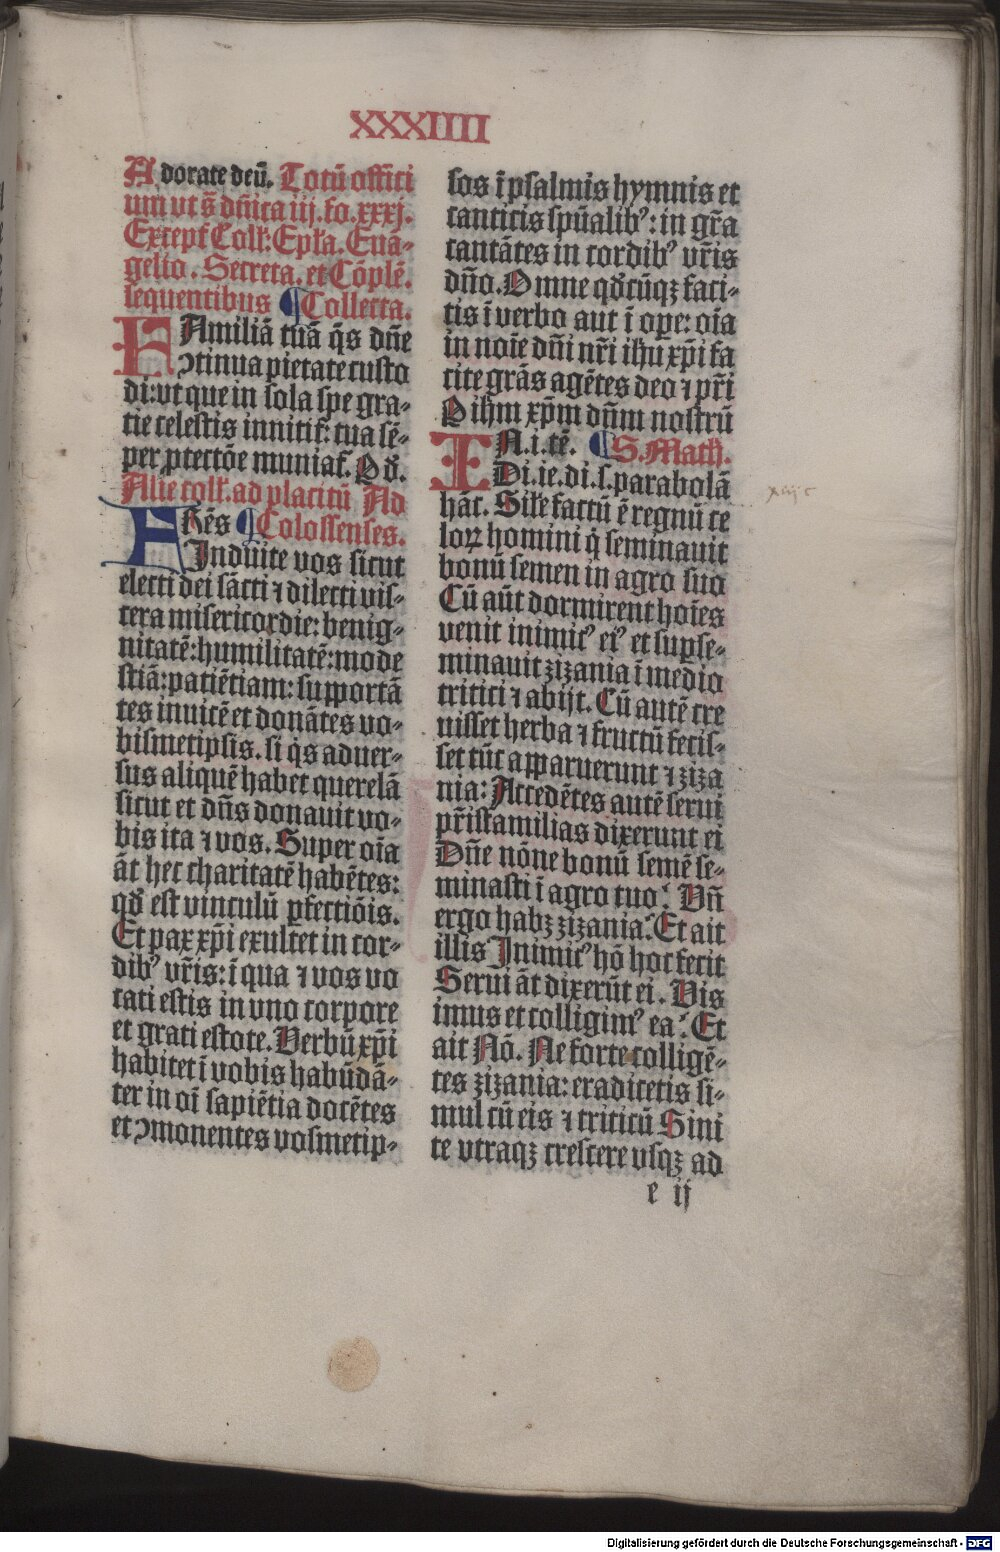 XXXIIII
Adorate deū. Totū offici
um vt s̄ dn̄ica iij. fo. xxxj.
Except Coll: Ep̄ła. Eua⸗
gelio. Secreta. et Cōplē.
sequentibus ¶ Collecta.
FAmiliā tuā q̄s dn̄e
ꝯtinua pietate custo
di: vt que in sola spe gra⸗
tie celestis innitif: tua sē⸗
per ꝓtectōe muniaf. Ꝑ d̄.
Alie coll. ad placitū Ad
FRēs ¶ Colossenses.
Induite vos sicut
electi dei sācti ⁊ dilecti vis⸗
cera misericordie: benig⸗
nitatē: humilitatē: mode
stiā: patiētiam: supportā
tes inuicē et donātes vo⸗
bismetipsis. si q̄s aduer⸗
sus aliquē habet querelā
sicut et dn̄s donauit vo⸗
bis ita ⁊ vos. Super oīa
āt hec charitatē habētes:
qd̄ est vinculū ꝑfectiōis.
Et pax xp̄i exultet in cor⸗
dibꝰ vr̄is: ī qua ⁊ vos vo
cati estis in vno corpore
et grati estote. Verbū xp̄i
habitet ī vobis habūdā⸗
ter in oī sapiētia docētes
et ꝯmonentes vosmetip⸗
sos ī psalmis hymnis et
canticis spūalibꝰ: in gr̄a
cantātes in cordibꝰ vr̄is
dn̄o. Omne qd̄cūqꝫ faci⸗
tis ī verbo aut ī oꝑe: oīa
in noīe dn̄i nr̄i ihu xp̄i fa
cite grās agētes deo ⁊ pr̄i
Ꝑ ihm xp̄m dn̄m nostrū
IN. i. tē. ¶ S. Math.
Di. ie. di. s. parabolā
hāc. Sile factū ē regnū ce
loꝝ homini q̄ seminauit
bonū semen in agro suo
Cū aūt dormirent hoīes
venit inimicꝰ eiꝰ et suꝑse⸗
minauit zizania ī medio
tritici ⁊ abijt. Cū autē cre
uisset herba ⁊ fructū fecis⸗
set tūc apparuerunt ⁊ ziza
nia: Accedētes autē serui
pr̄isfamilias dixerunt ei
Dn̄e nōne bonū semē se⸗
minasti ī agro tuo? Vn̄
ergo habꝫ zizania? Et ait
illis Inimicꝰ hō hoc fecit
Serui āt dixerūt ei. Vis
imus et colligimꝰ ea? Et
ait Nō. Ne forte colligē⸗
tes zizania: eradicetis si⸗
mul cū eis ⁊ triticū Sini
te vtraqꝫ crescere vsqꝫ ad
e ij
Digitalisierung gefördert durch die Deutsche Forschungsgemeinschaft - DFG